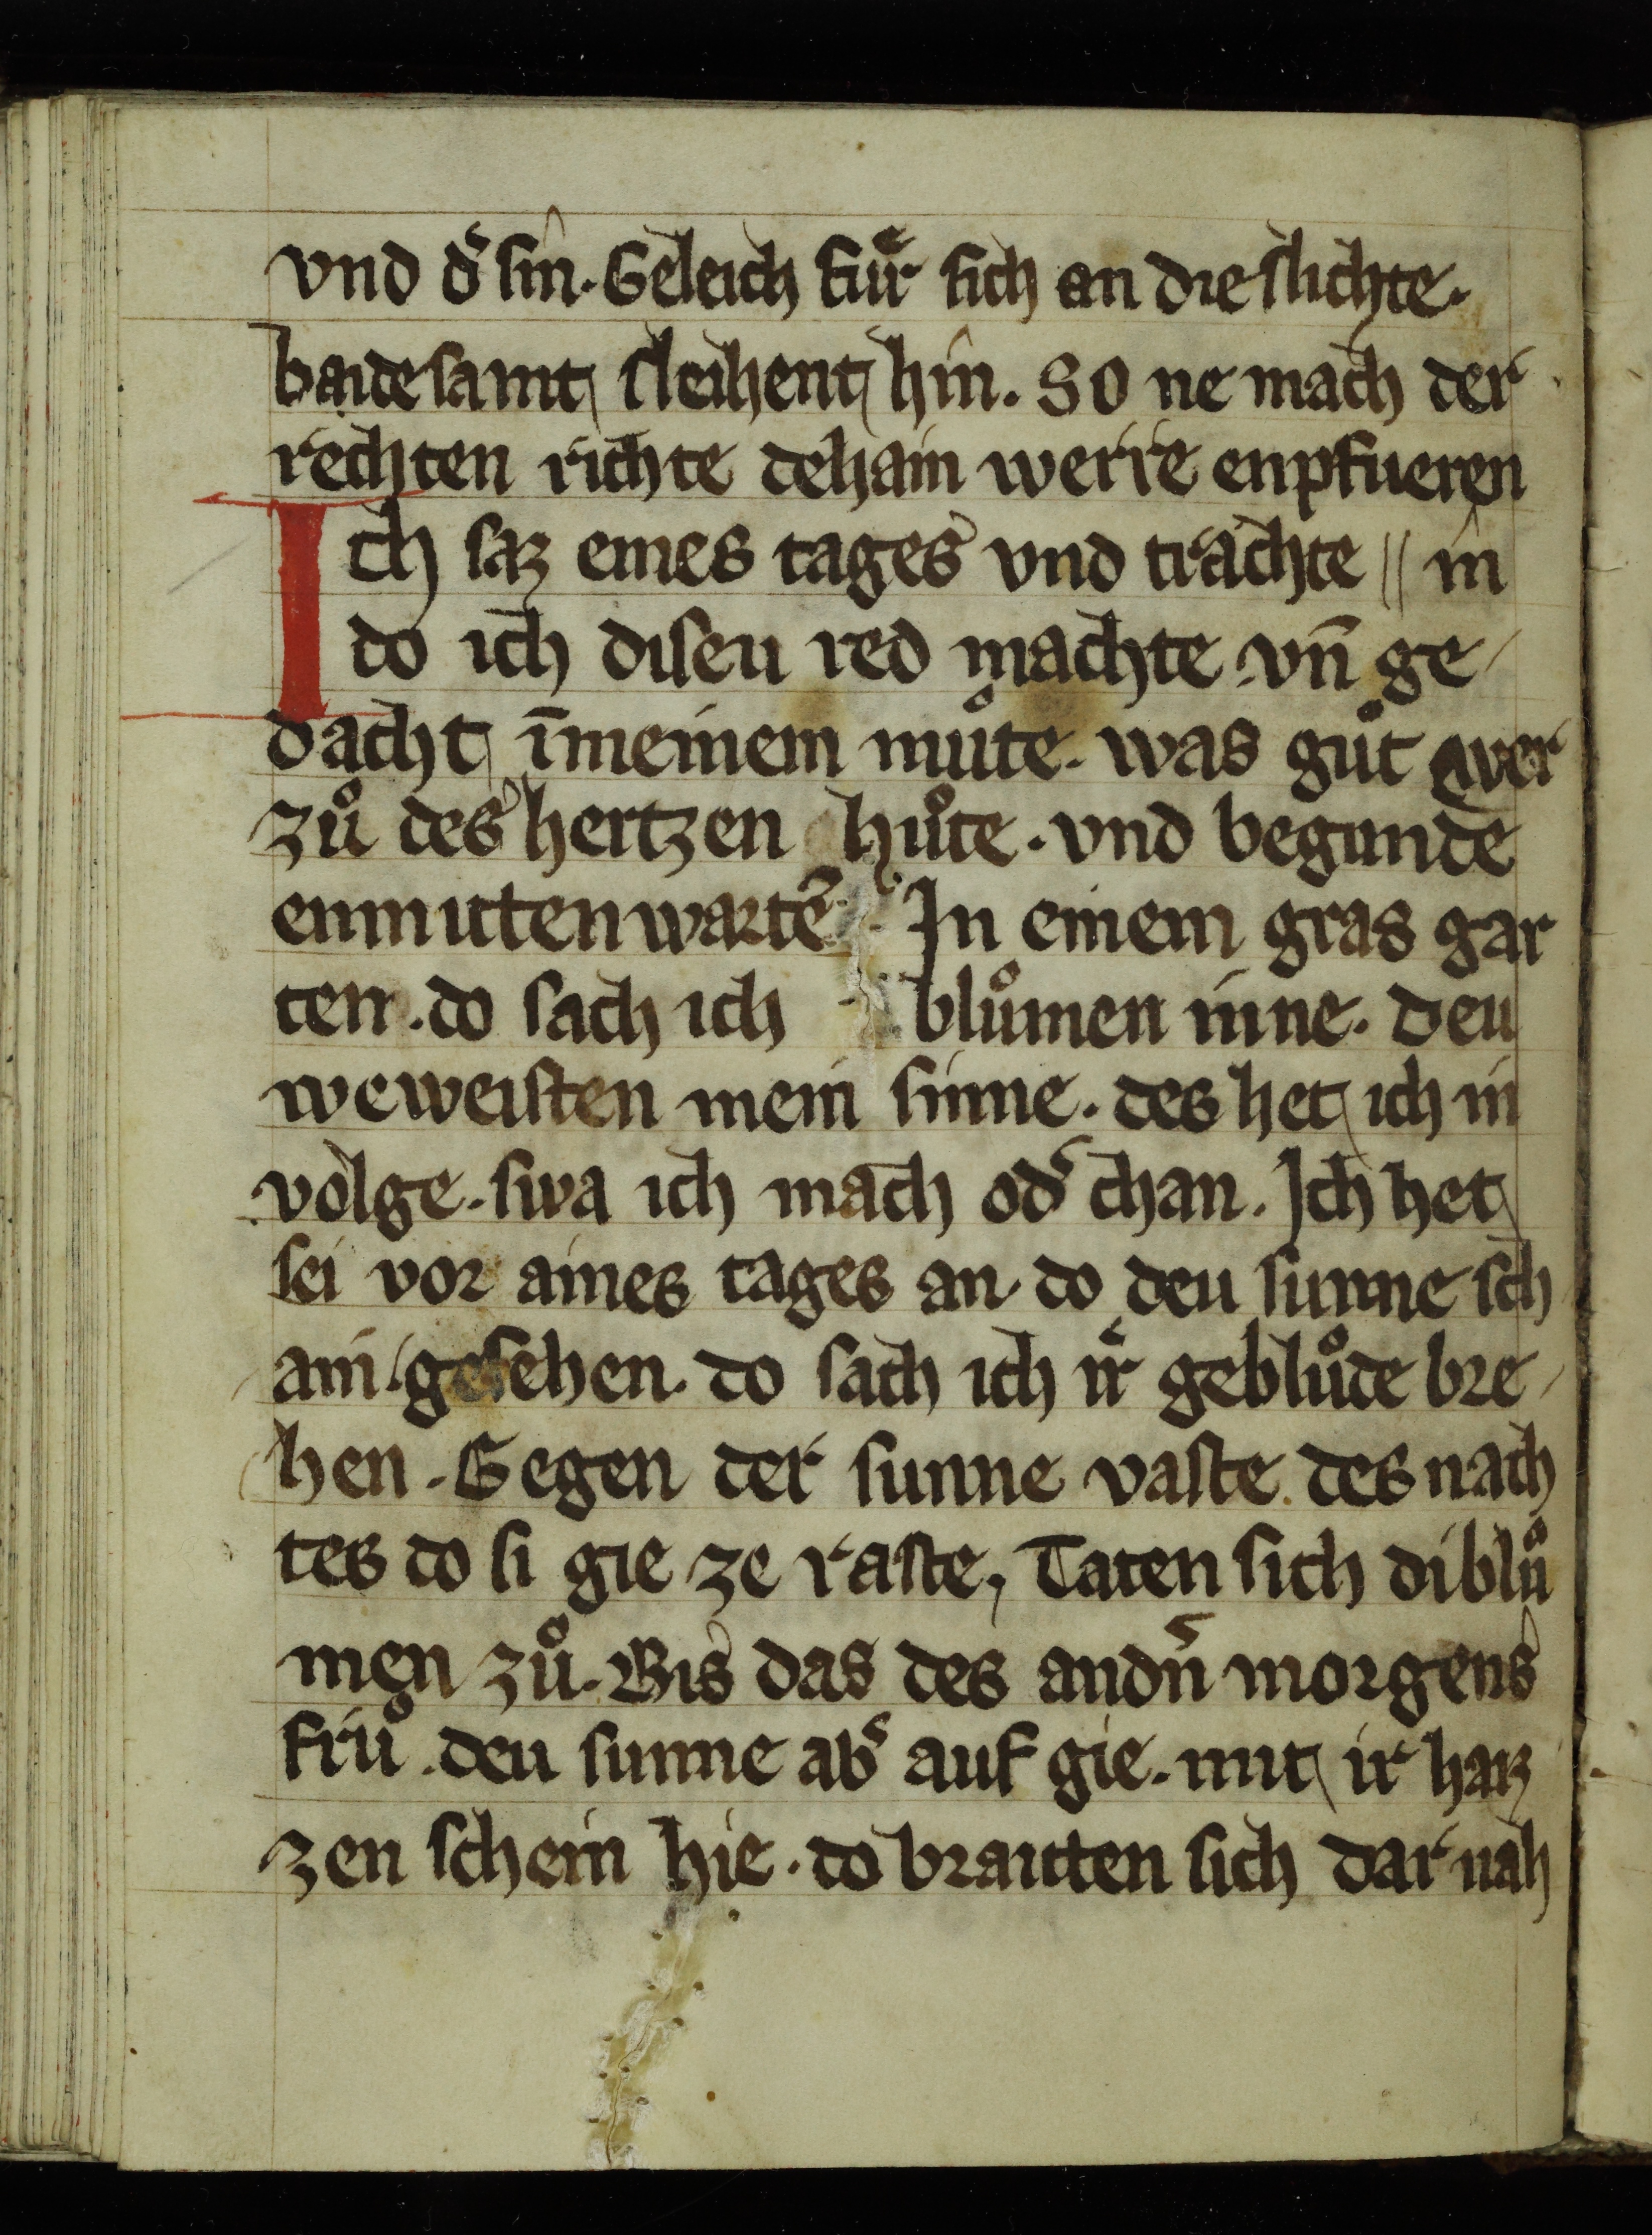 vnd dˢ sin. Geleich fuͤr sich an die slichte.
baide samt sleihent hin. So ne mach der
rechten richte dehain werre enpfueren
Ich saz eines tages vnd trachte // in
do ich diseu red machte. vn̄ ge
dacht ī meinem muͦte. was guͦt wer
zuͦ des hertzen huͦte. vnd begunde
enmitten wartē. In einem gras gar
ten. do sach ich bluͦmen inne. deu
weweisten mein sinne. des het ich in
volge. swa ich mach odˢ chan. Ich het
sei vor aines tages an. do deu sunne sch
ain. gesehen. do sach ich ir gebluͦde bre
hen. Gegen der sunne vaste. des nach
tes do si gie ze raste, Taten sich di bluͦ
men zuͦ. Bis das des andn̄ morgens
fruͦ. deu sunne abˢ auf gie. mit ir haiz
zen schein hie. do braitten sich dar nah